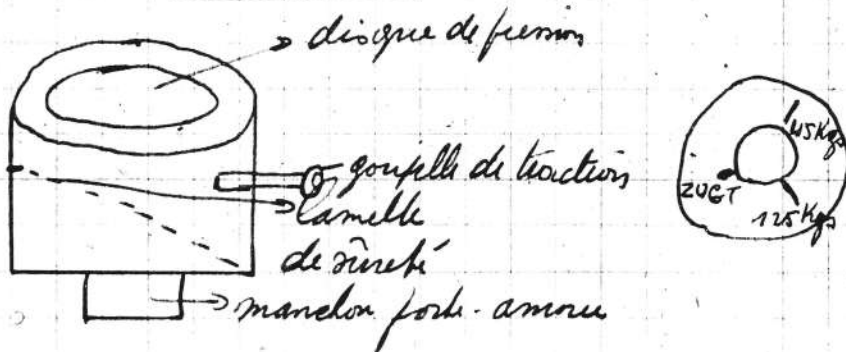 disque de pression
goupille de traction
lamelle
de sûreté
manchon porte-amorce
45 Kgs
ZUGT
125 Kgs